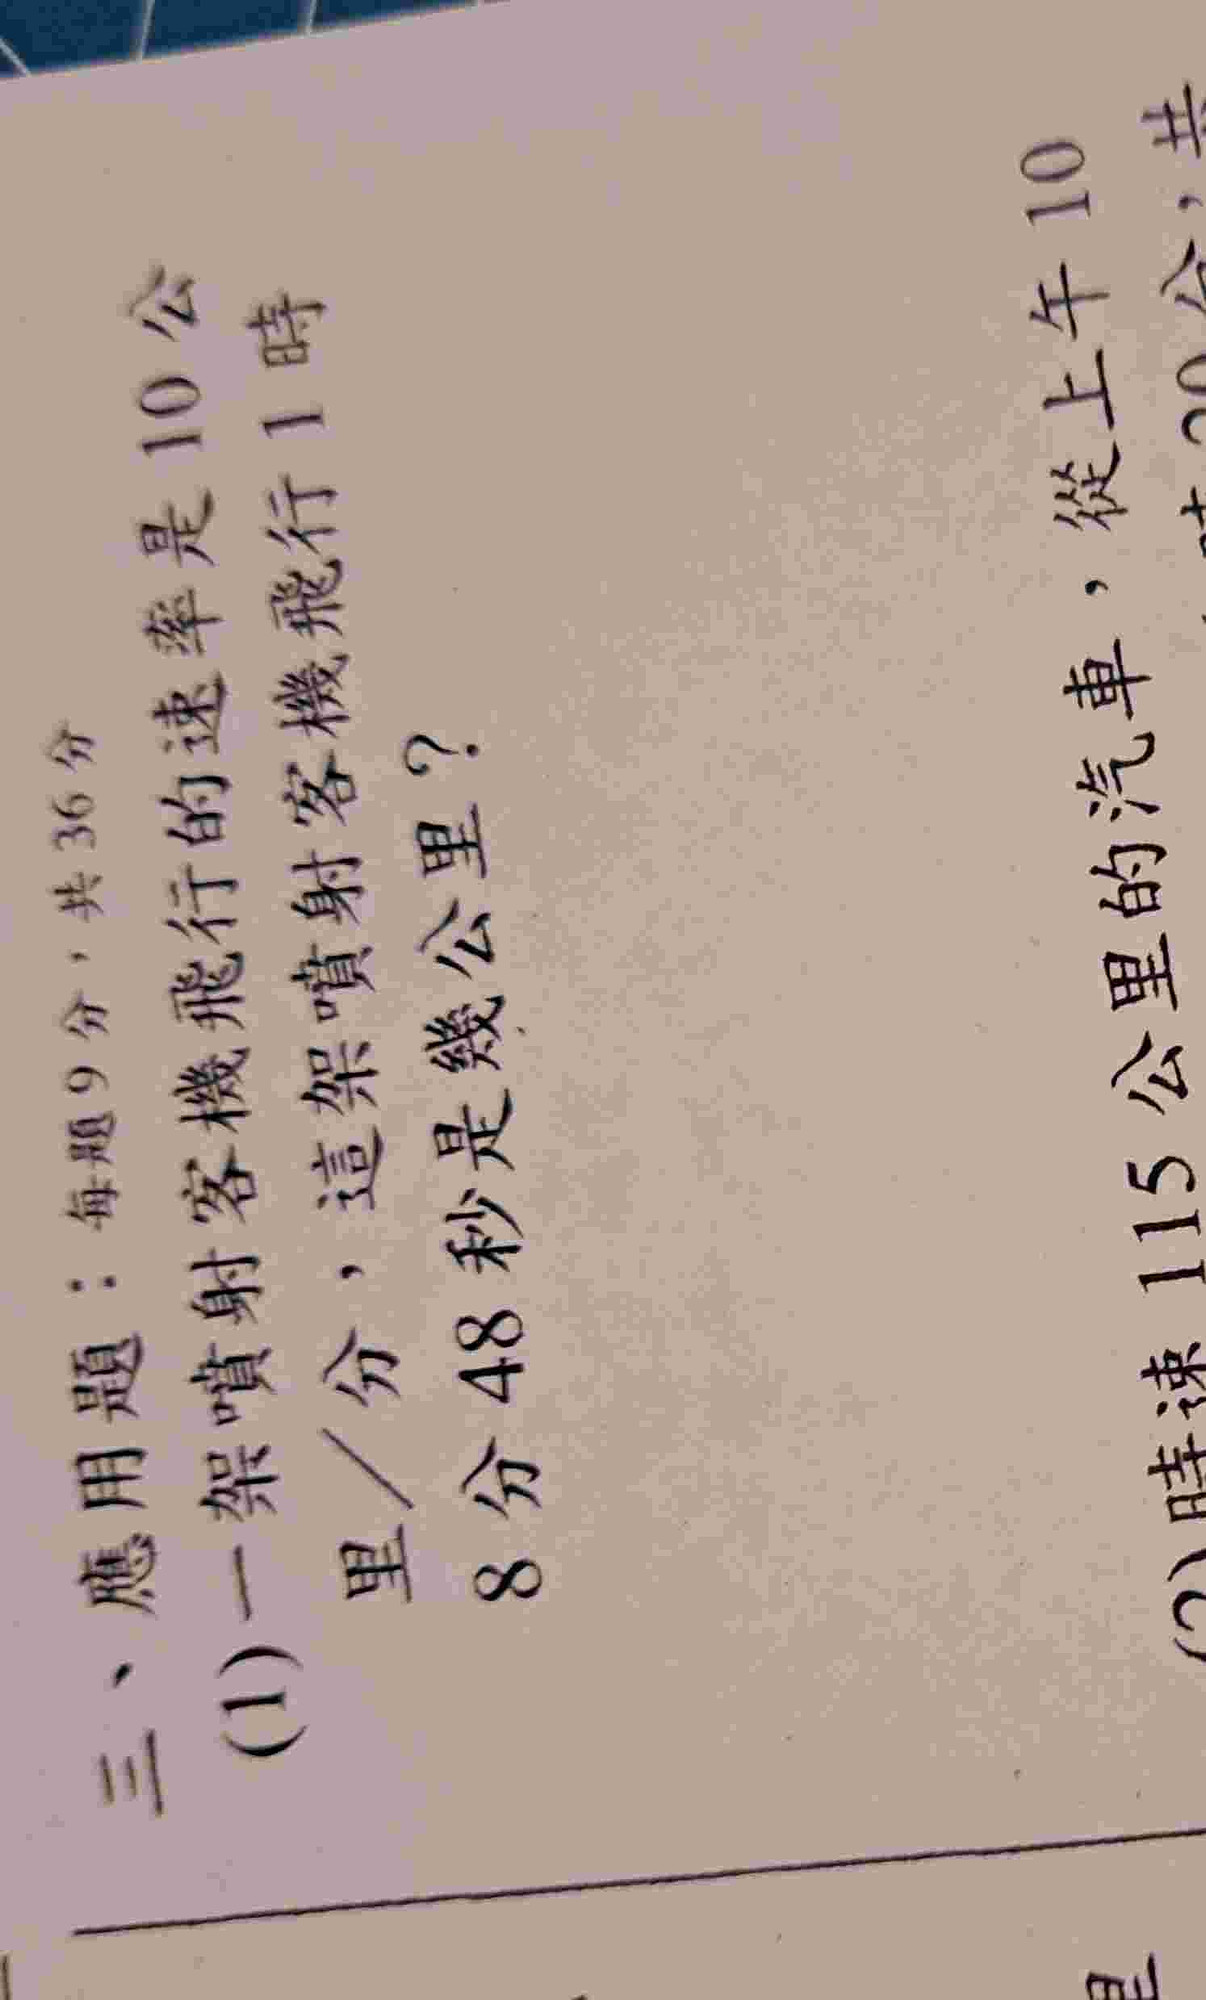 三、應用題：每題9分，共36分
(1)一架噴射客機飛行的速率是10公
里／分，這架噴射客機飛行1時
8分48秒是幾公里？
(2)時速115公里的汽車，從上午10